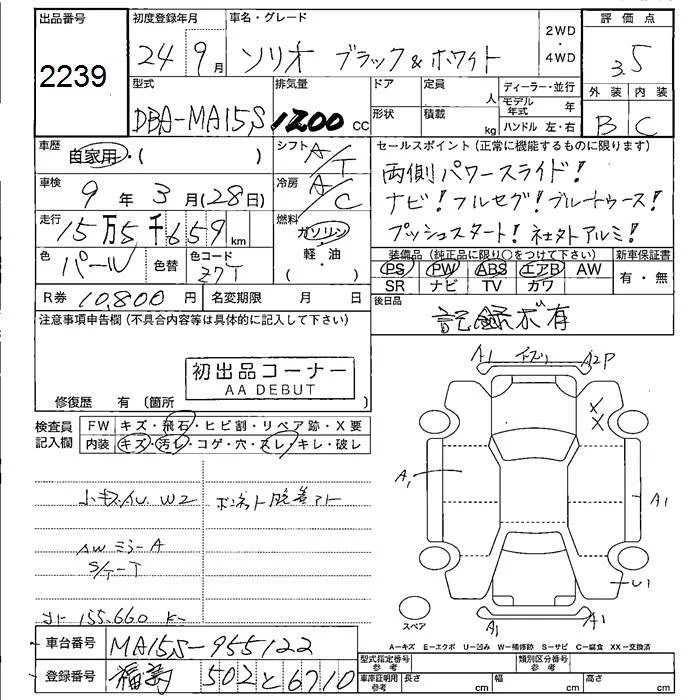 出品番号 初度登録年月 車名・グレード 2WD・4WD 評価点
2239 24 9月 ソリオ ブラック&ホワイト 3.5
型式 排気量 ドア 定員 人 ディーラー・並行 外装 内装
DBA-MA15S 1200 cc 形状 積載 kg モデル年式 年 B C
ハンドル 左・右
車歴 自家用・( ) シフト A/T セールスポイント(正常に機能するものに限ります)
車検 9年 3月(28日) 冷房 A/C 両側パワースライド!
ナビ!フルセグ!ブルートゥース!
走行 15万5千659km 燃料 ガソリン・軽油・( ) プッシュスタート!社外アルミ!
色 パール 色替 色コード Z7T 装備品(純正品に限り○をつけて下さい) 新車保証書
PS PW ABS エアB AW 有・無
SR ナビ TV カワ
R券 10,800円 名変期限 月 日 後日品
注意事項申告欄(不具合内容等は具体的に記入して下さい) 記録ボ有
初出品コーナー
AA DEBUT
修復歴 有(箇所 )
検査員記入欄 FW キズ・飛石・ヒビ割・リペア跡・X要
内装 キズ・汚レ・コゲ・穴・スレ・キレ・破レ
A1 A2P
X
X
A1 A1
小キズ W2 ボンネット脱着アト
AWミラーA
U1
スペア A1 A1
155,660
A=キズ E=エクボ U=凹み W=補修跡 S=サビ C=腐食 XX=交換済
車台番号 MA15S-955122
型式指定番号参考 類別区分番号参考
登録番号 502と6710
車庫証明用参考 長さ cm 幅 cm 高さ cm